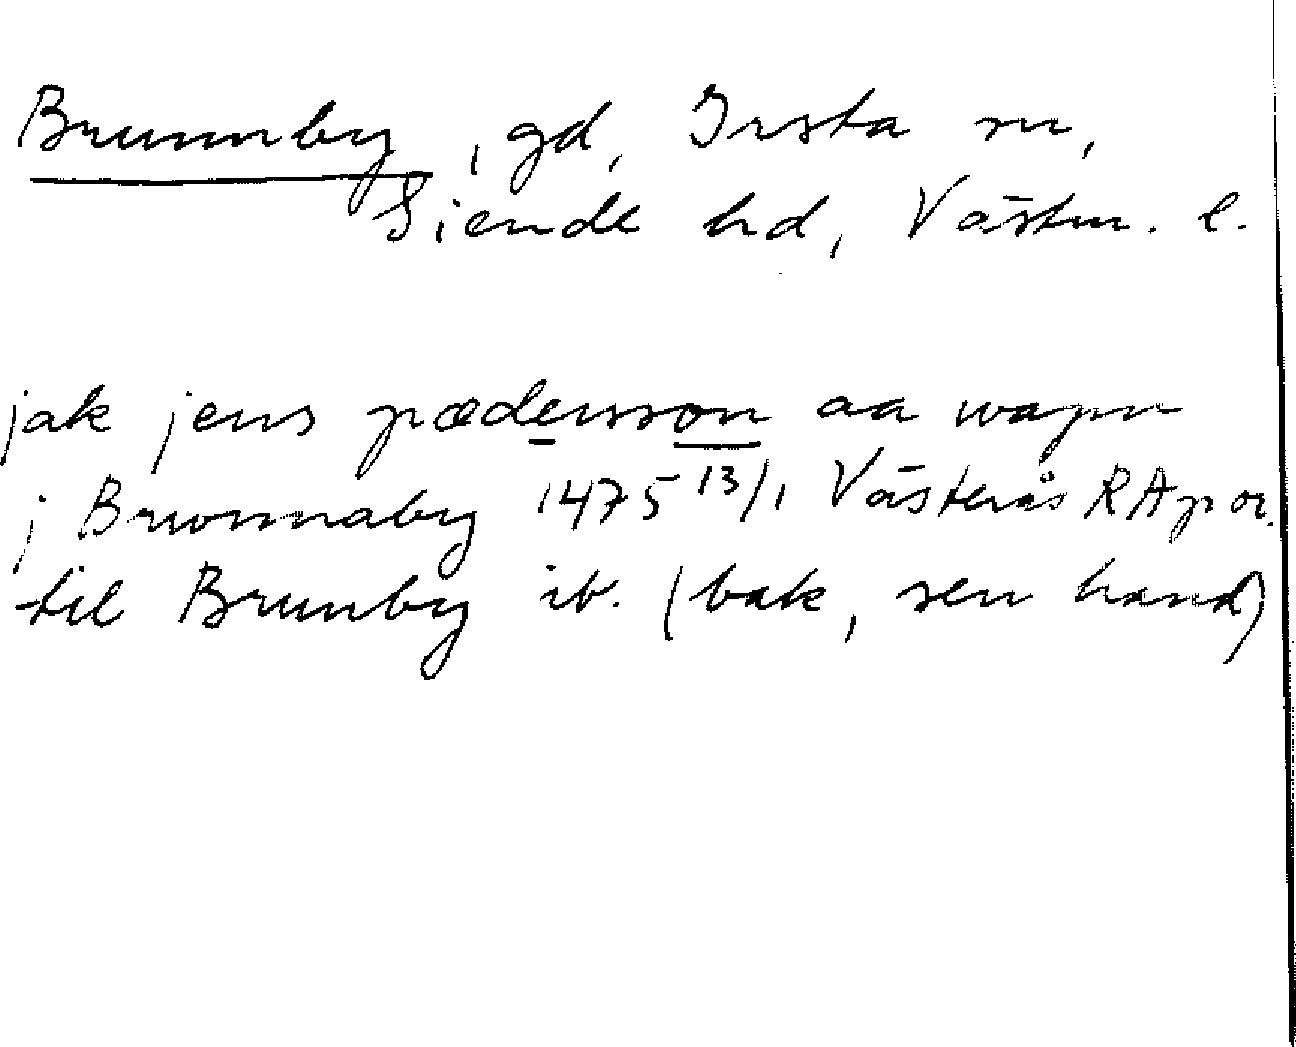 Brunnby, gd, Irsta sn,
Siende hd, Västm. l.
jak jens pædersson aa wapn
j Brwnnaby 1475 13/1 Västerås RAp or.
til Brunby ib. (bak, sen hand)